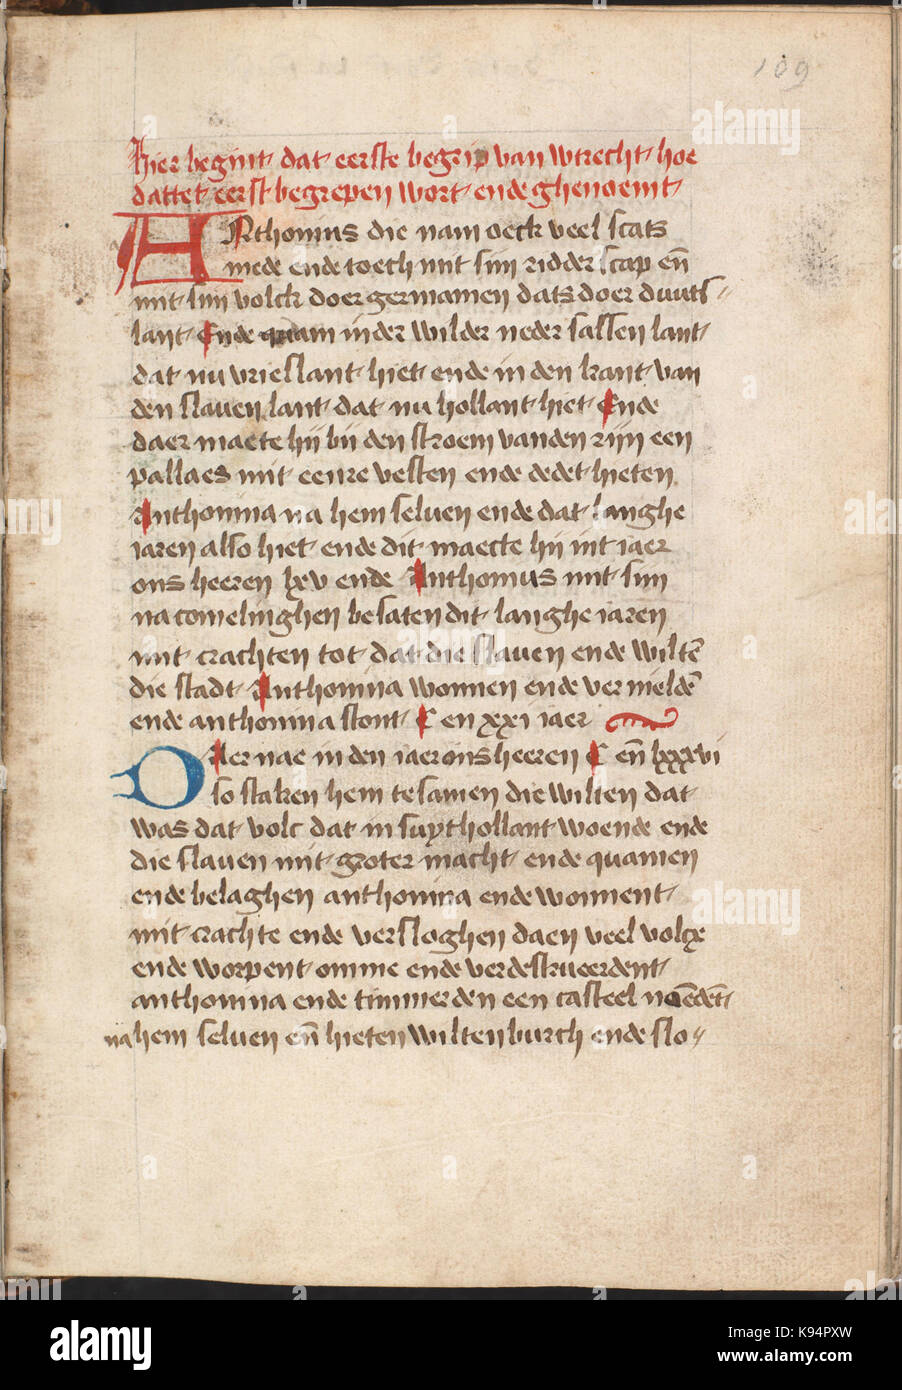 109
Hier begint dat eerste begrip van wtrecht hoe
dattet eerst begrepen wort ende ghenoemt
ANthonius die nam oeck veel scats
mede ende toech mit sijn ridderscap eñ
mit sijn volck doer germanien dats doer duuts
lant Ende quam in der wilder neder sassen lant
dat nu vrieslant hiet ende in den kant van
den slauen lant dat nu hollant hiet Ende
daer maecte hij bij den stroem vanden rijn een
pallaes mit eenre vesten ende dedet hieten
Anthonina na hem seluen ende dat langhe
iaren also hiet ende dit maecte hij int iaer
ons heeren lxv ende Anthonius mit sijn
nacomelinghen besaten dit langhe iaren
mit crachten tot dat die slauen ende wiltē
die stadt Anthonina wonnen ende vernieldē
ende anthonina stont C en xxi iaer
DAer nae in den iaer ons heeren C eñ lxxxvi
so staken hem tesamen die wilten dat
was dat volc dat in suythollant woende ende
die slauen mit groter macht ende quamen
ende belaghen anthonina ende wonnent
mit crachte ende versloghen daen veel volcx
ende worpent omme ende verdestrueerdent
anthonina ende timmerden een casteel
na hem seluen eñ hieten wiltenburch ende slo
alamy
Image ID: K94PXW
www.alamy.com